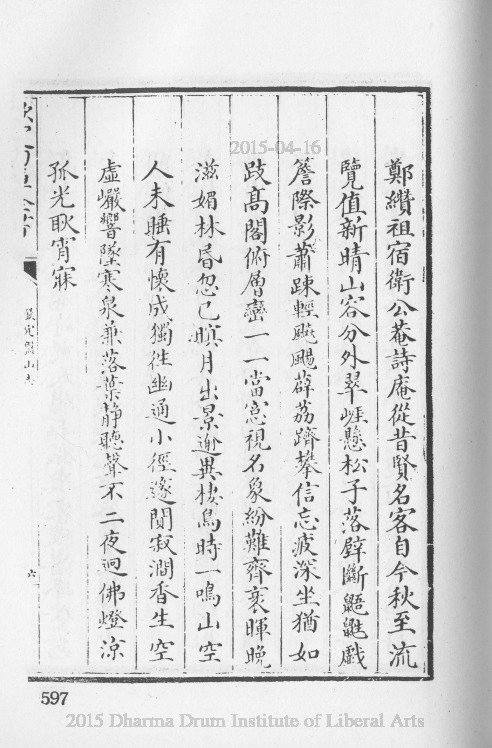 鄭纘祖宿衛公菴詩庵從昔賢名客自今秋至流
覽值新晴山容分外翠崕懸松子落壁斷鼯鼪戲
簷際影蕭踈輕飈颺薜荔躋攀信忘疲深坐猶如
跂高閣俯層巒一一當窻視名象紛難齊衷暉晚
滋媚林昏忽已瞑月出景逾異棲鳥時一鳴山空
人未睡有懷成獨徃幽通小徑邃闃寂澗香生空
虛巖響墜寒泉兼落葉靜聽聲不二夜迥佛燈涼
孤光耿宵寐
欽定盤山志
六
597
2015-04-16
2015 Dharma Drum Institute of Liberal Arts